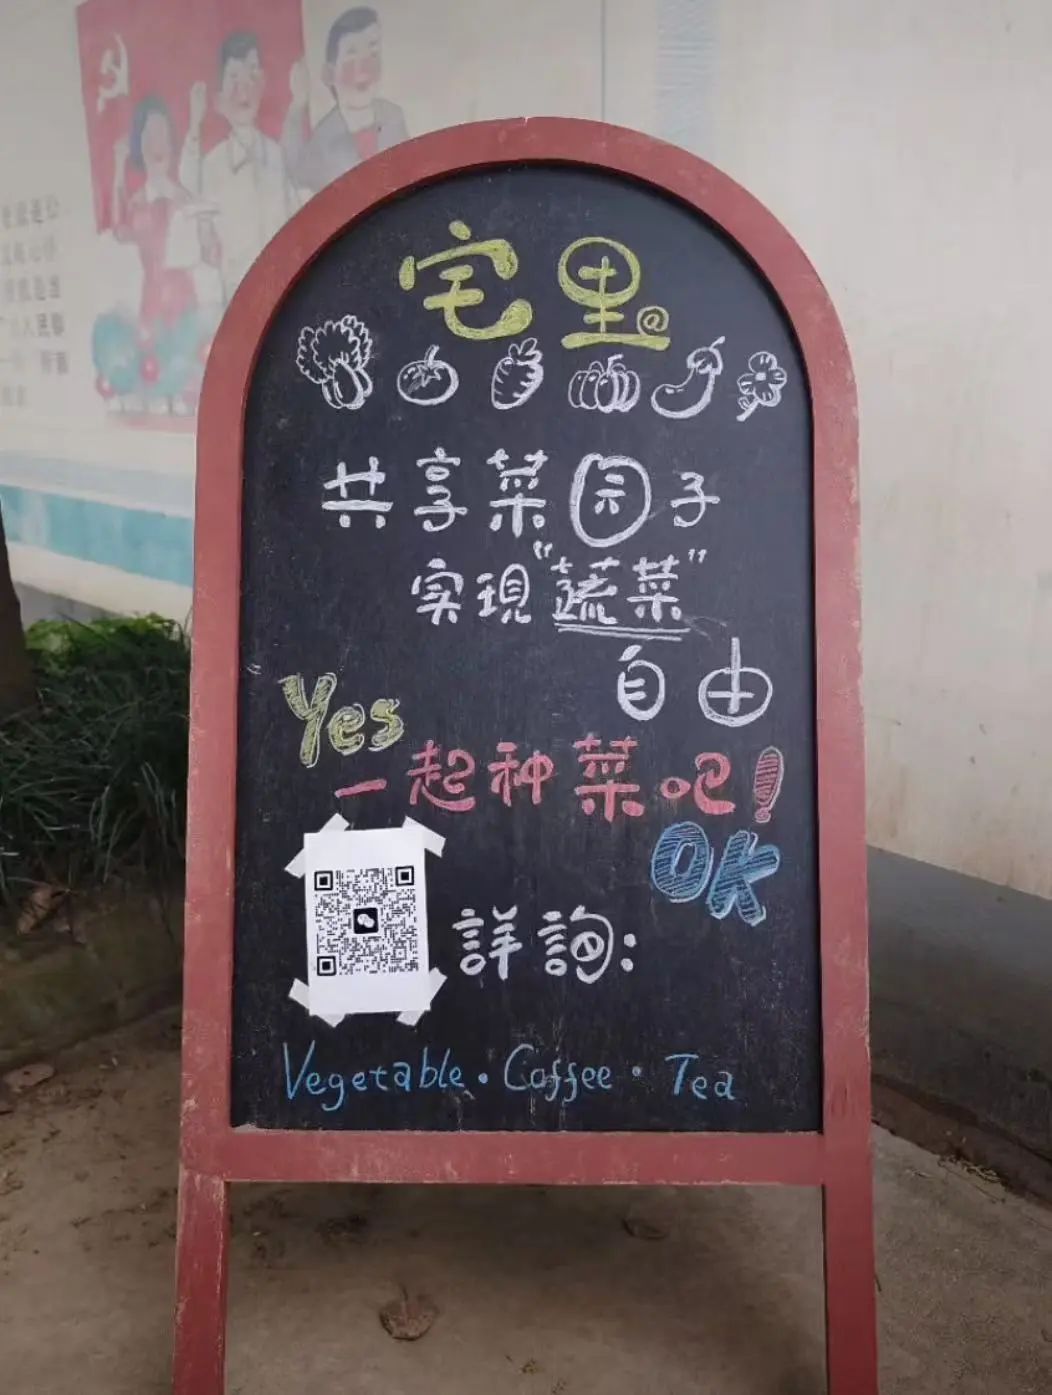 宅里@
共享菜园子
实現"蔬菜"
自由
Yes
一起种菜吧!
OK
詳詢:
Vegetable·Coffee·Tea